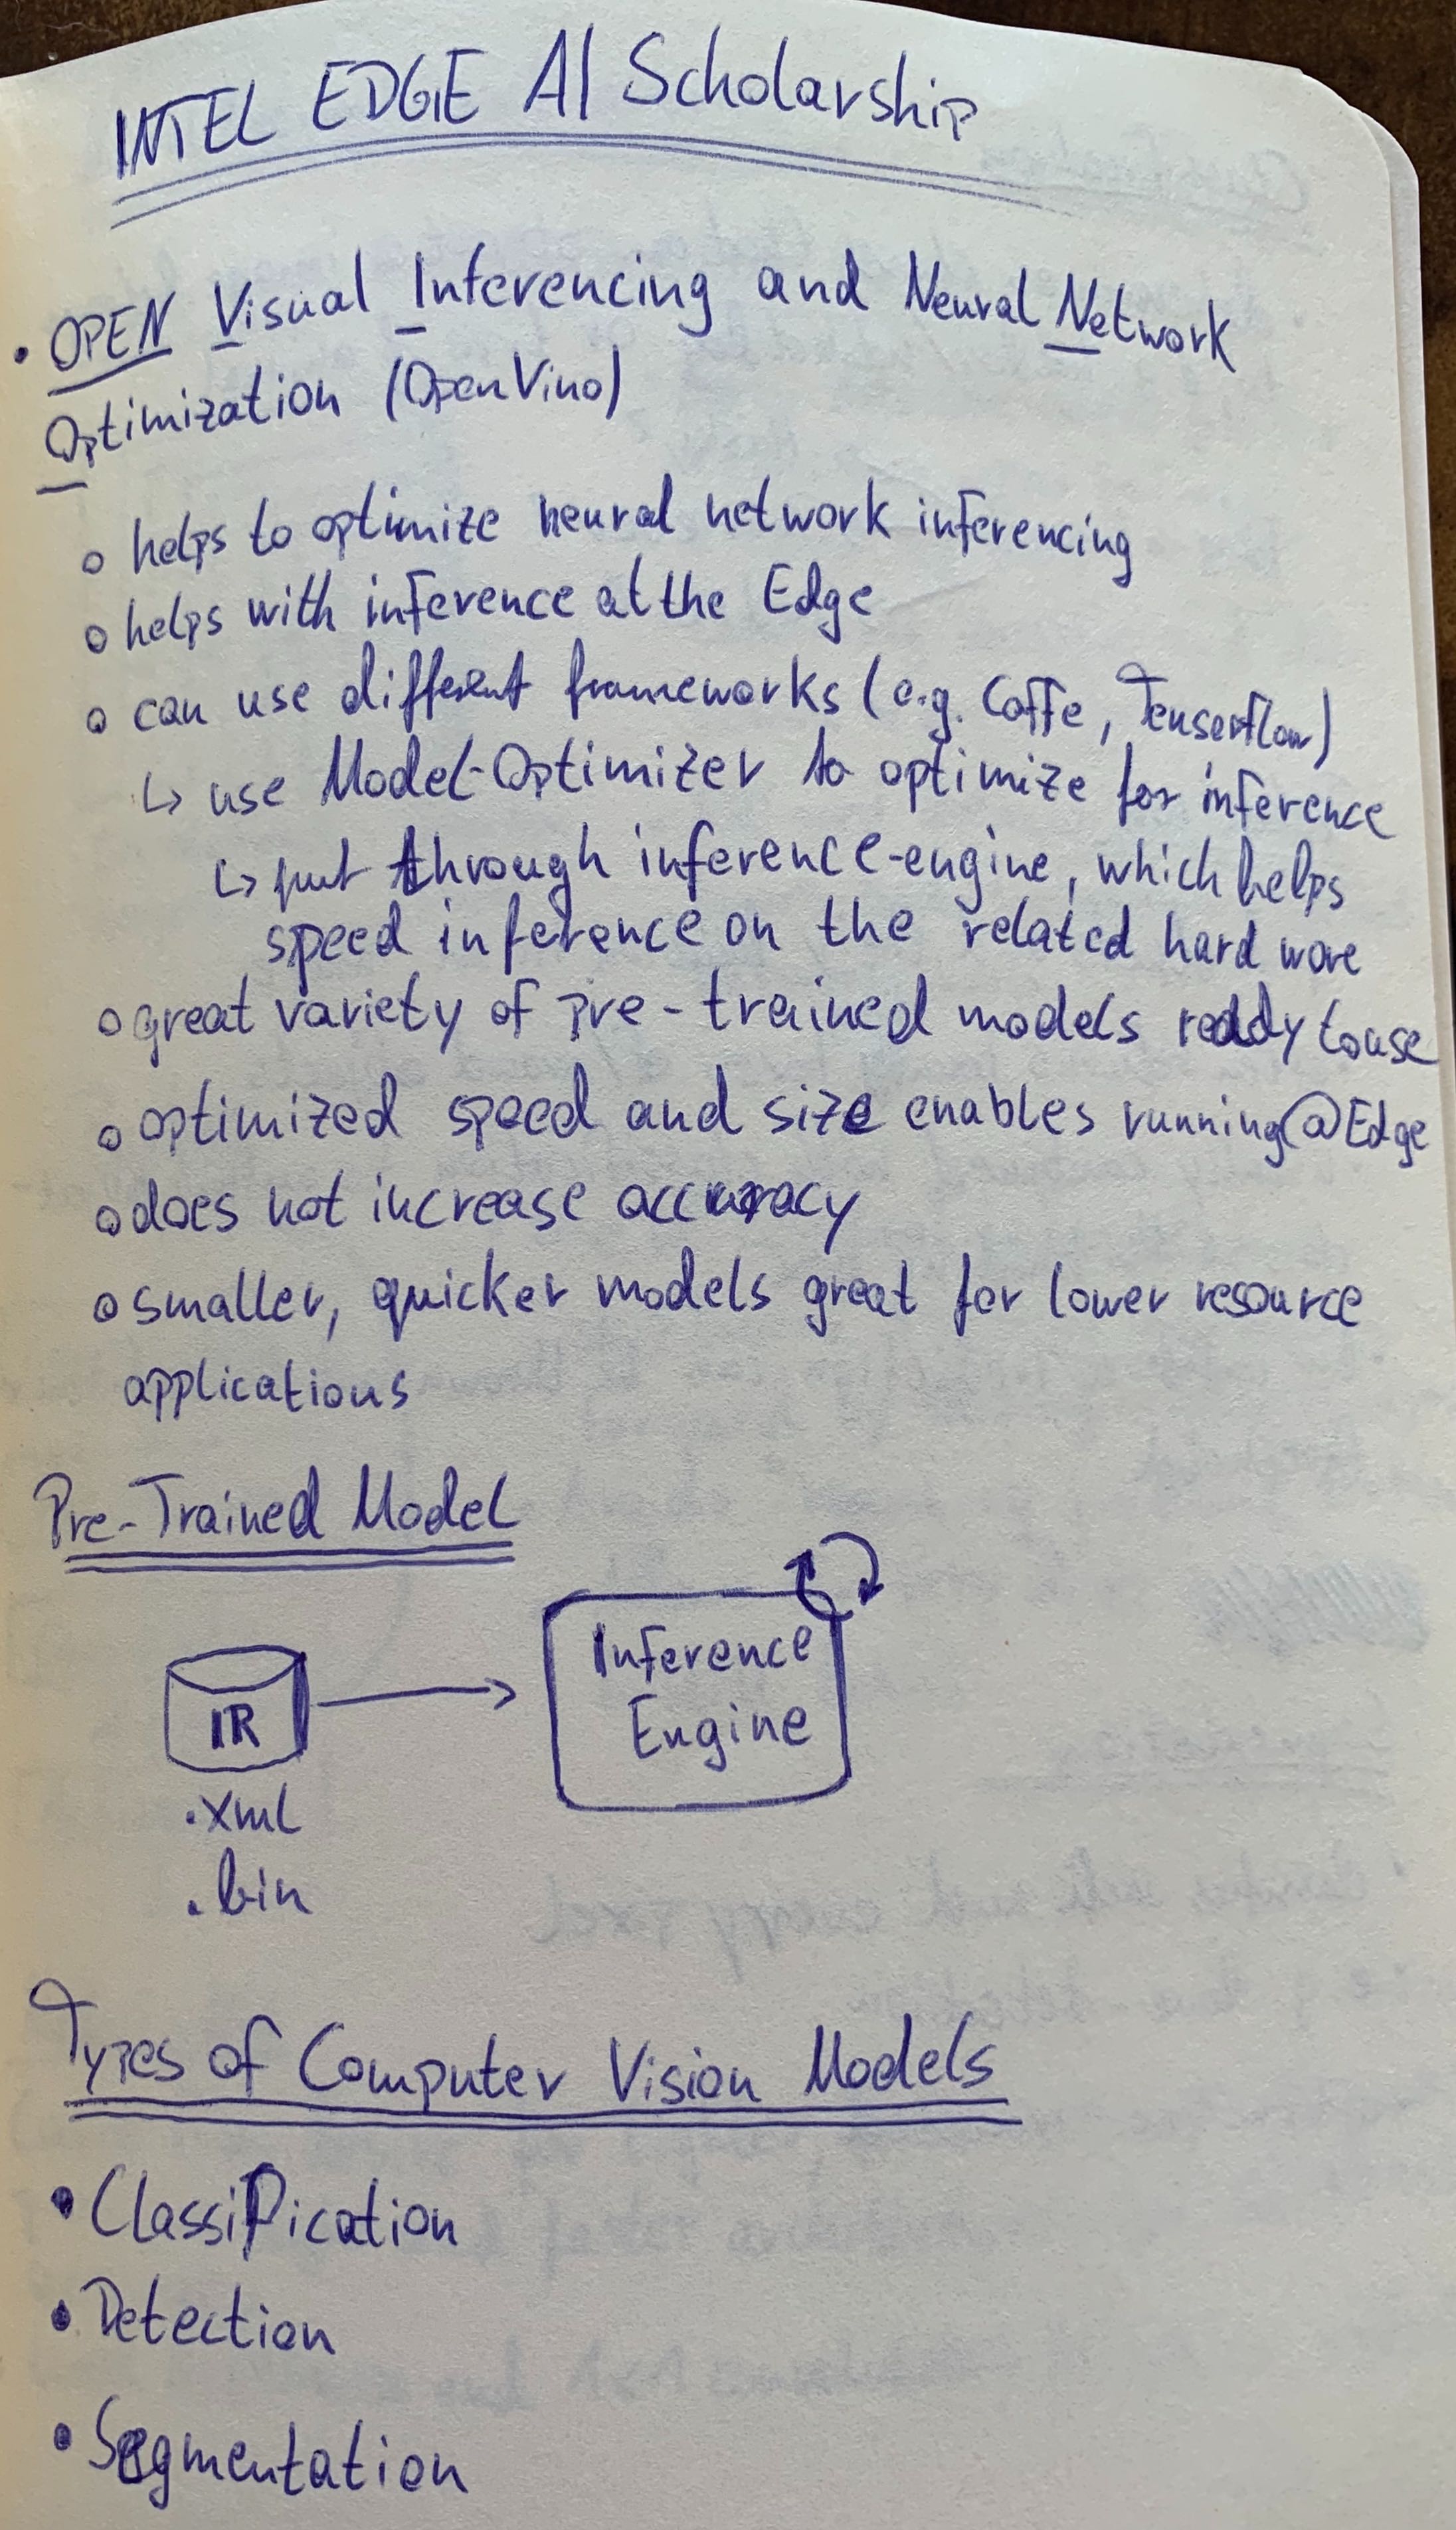 INTEL EDGE AI Scholarship
• OPEN Visual Inferencing and Neural Network
Optimization (OpenVino)
o helps to optimize neural network inferencing
o helps with inference at the Edge
o can use different frameworks (e.g. Caffe, Tensorflow)
↳ use Model-Optimizer to optimize for inference
↳ put through inference-engine, which helps
speed inference on the related hard ware
o great variety of pre-trained models ready to use
o optimized speed and size enables running @ Edge
o does not increase accuracy
o smaller, quicker models great for lower resource
applications
Pre-Trained Model
IR
Inference
Engine
.xml
.bin
Types of Computer Vision Models
• Classification
• Detection
• Segmentation